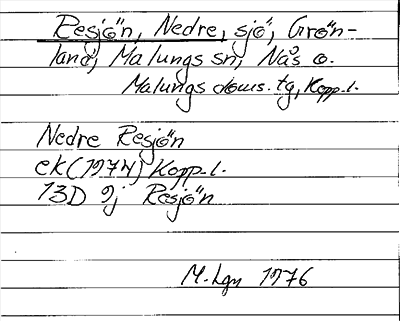 Resjön, Nedre, sjö, Grön-
land, Malungs sn, Nås o.
Malungs doms. tg, Kopp.l.
Nedre Resjön
ek (1974) Kopp.l.
13D 9j Resjön
M. Lgn 1976